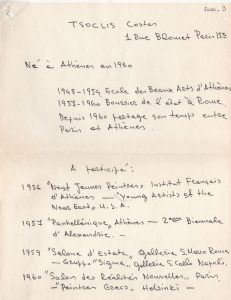 TSOCLIS Costas
1 Rue Blomet Paris 15e
Né à Athènes en 1930
1948-1954 Ecole des Beaux Arts d'Athènes
1957-1960 Boursier de l'état à Rome.
Depuis 1960 partage son temps entre
Paris et Athènes.
A participé:
1956 "Neuf Jeunes Peintres" Institut Français
d'Athènes — "Young Artists of the
Near East", U.S.A.
1957 "Panhellénique" Athènes — 2ème Biennale
d'Alexandrie. —
1959 "Salone d'Estate", Galleria S. Marco Roma
— Gruppo "Sigma", Galleria S. Carlo Napoli.
1960 "Salon des Réalités Nouvelles", Paris.
— "Peintres Grecs" Helsinki —